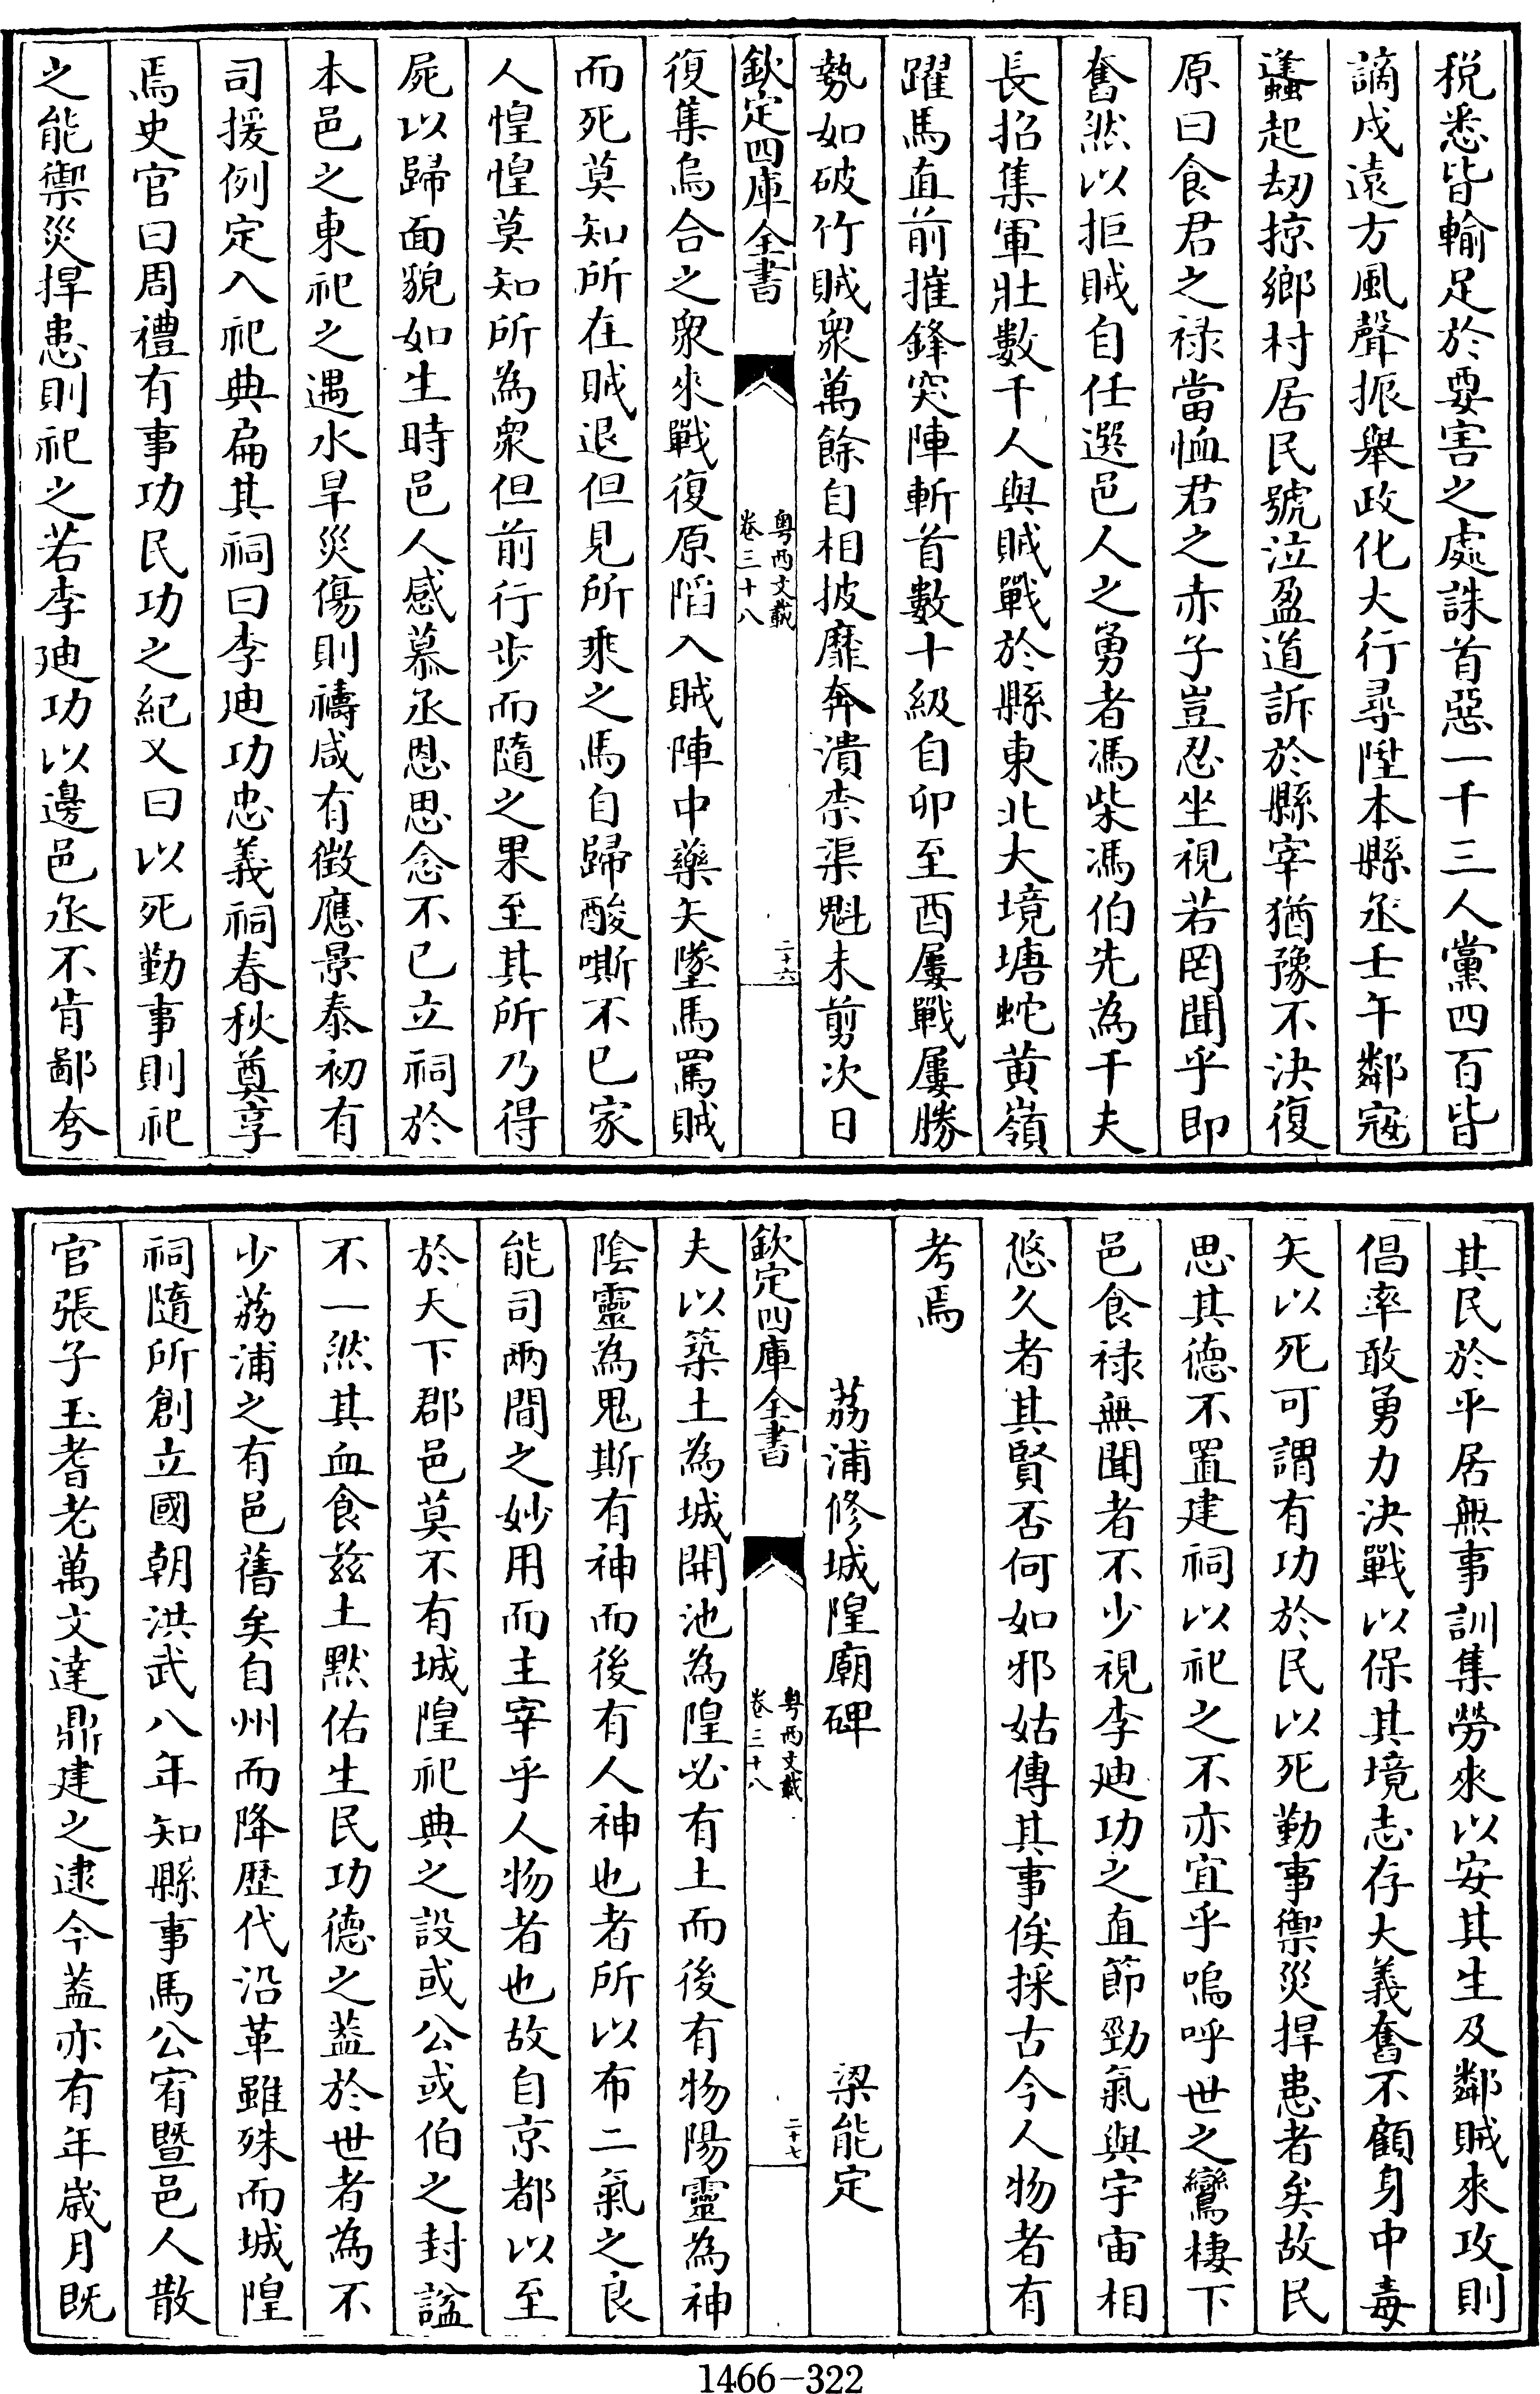 税悉皆輸足於要害之處誅首惡一千三人黨四百皆
謫戍遠方風聲振舉政化大行尋陞本縣丞壬午鄰寇
蠭起刼掠鄉村居民號泣盈道訴於縣宰猶豫不決復
原曰食君之禄當恤君之赤子豈忍坐視若罔聞乎即
奮然以拒賊自任選邑人之勇者馮柴馮伯先為千夫
長招集軍壯數千人與賊戰於縣東北大境塘蛇黄嶺
躍馬直前摧鋒突陣斬首數十級自卯至酉屢戰屢勝
勢如破竹賊衆萬餘自相披靡奔潰柰渠魁未剪次日
欽定四庫全書
粤西文載
卷三十八
二十六
復集烏合之衆來戰復原陷入賊陣中藥矢墜馬罵賊
而死莫知所在賊退但見所乘之馬自歸酸嘶不已家
人惶惶莫知所為衆但前行步而隨之果至其所乃得
屍以歸面貌如生時邑人感慕丞恩思念不已立祠於
本邑之東祀之遇水旱災傷則禱咸有徵應景泰初有
司援例定入祀典扁其祠曰李廸功忠義祠春秋奠享
焉史官曰周禮有事功民功之紀又曰以死勤事則祀
之能禦災捍患則祀之若李廸功以邊邑丞不肯鄙夸
其民於平居無事訓集勞來以安其生及鄰賊來攻則
倡率敢勇力決戰以保其境志存大義奮不顧身中毒
矢以死可謂有功於民以死勤事禦災捍患者矣故民
思其德不置建祠以祀之不亦宜乎嗚呼世之鸞棲下
邑食禄無聞者不少視李廸功之直節勁氣與宇宙相
悠久者其賢否何如邪姑傳其事俟採古今人物者有
考焉
荔浦修城隍廟碑
梁能定
欽定四庫全書
粤西文載
卷三十八
二十七
夫以築土為城開池為隍必有土而後有物陽靈為神
陰靈為鬼斯有神而後有人神也者所以布二氣之良
能司兩間之妙用而主宰乎人物者也故自京都以至
於天下郡邑莫不有城隍祀典之設或公或伯之封諡
不一然其血食兹土黙佑生民功德之葢於世者為不
少荔浦之有邑舊矣自州而降歴代沿革雖殊而城隍
祠隨所創立國朝洪武八年知縣事馬公宥暨邑人散
官張子玉耆老萬文達鼎建之逮今葢亦有年歲月既
1466-322